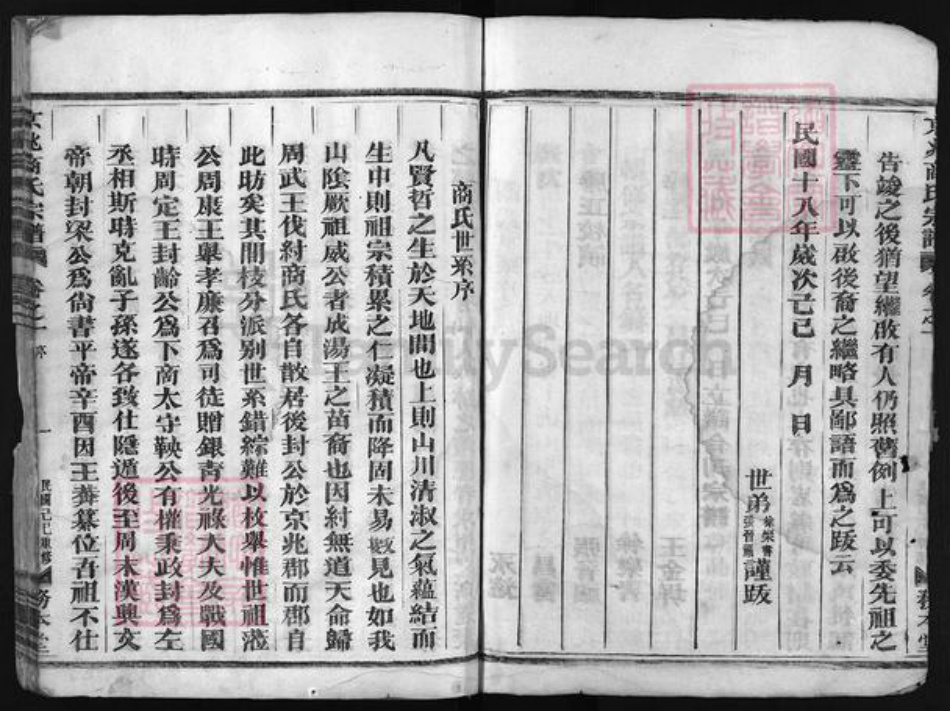 告竣之後猶望繼啟有人仍照舊例上可以委先祖之
靈下可以啟後裔之繼略具鄙語而爲之跋云
民國十八年歲次己巳 月 日
世弟 謹跋
商氏世系序
凡賢哲之生於天地間也上則山川清淑之氣蘊結而
生中則祖宗積累之仁凝積而降固未易數見也如我
山陰厥祖威公者成湯王之苗裔也因紂無道天命歸
周武王伐紂商氏各自散居後封公於京兆郡而郡自
此昉矣其間枝分派别世系錯綜難以枚舉惟世祖
公周康王舉孝廉召爲司徒贈銀青光祿大夫及戰國
時周定王封齡公爲下商太守鞅公有權秉政封爲左
丞相斯時克亂子孫遂各致仕隱遁後至周末漢興文
帝朝封梁公爲尙書平帝辛酉因王莽篡位吾祖不仕
京兆商氏宗譜 卷之一 序
一
民國己巳重修
務本堂
FamilySearch